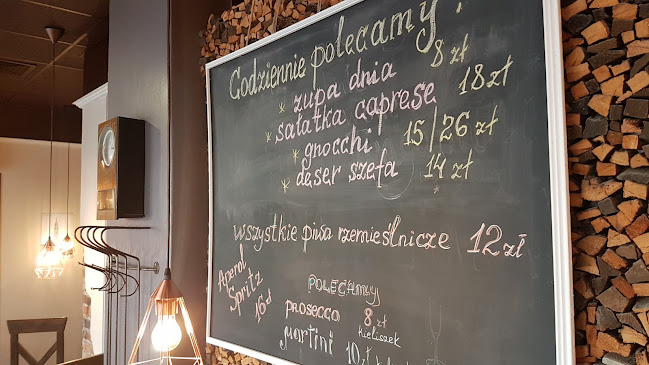 Godziennie polecamy!
* zupa dnia 8 zł
* sałatka caprese 18 zł
* gnocchi 15/26 zł
* deser szefa 14 zł
wszystkie piwa rzemieślnicze 12 zł
Aperol
Spritz
16 zł
POLECAMY
PROSECCO 8 zł
kieliszek
Martini 10 zł